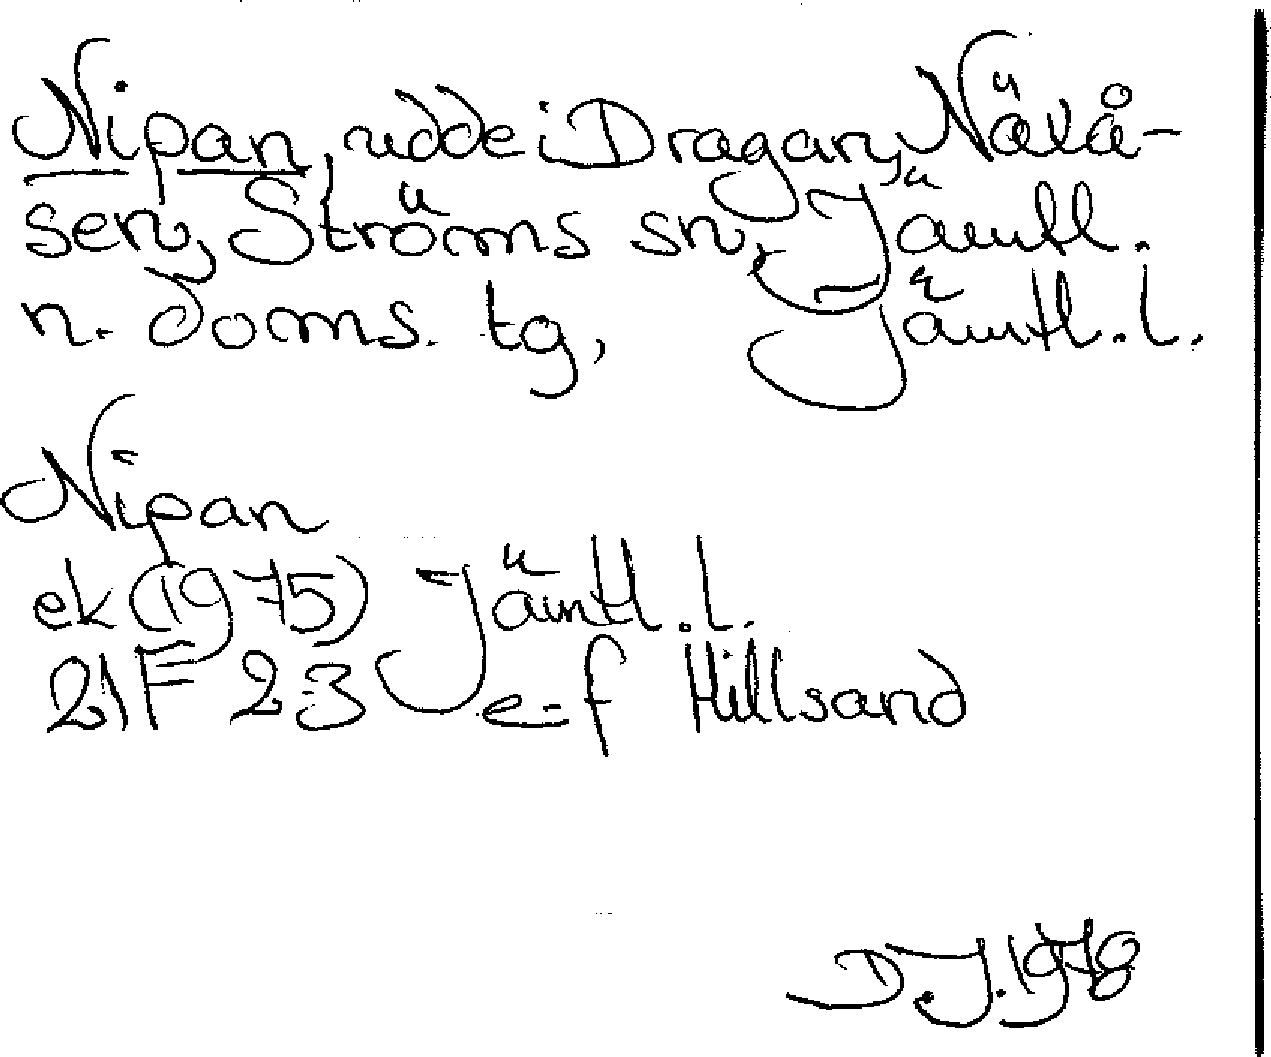 Nipan, udde i Dragan, Näkå-
sen, Ströms sn, Jämtl.
n. doms. tg, Jämtl. l.
Nipan
ek (1975) Jämtl. l.
21F 2-3 e-f Hillsand
D.J. 1978